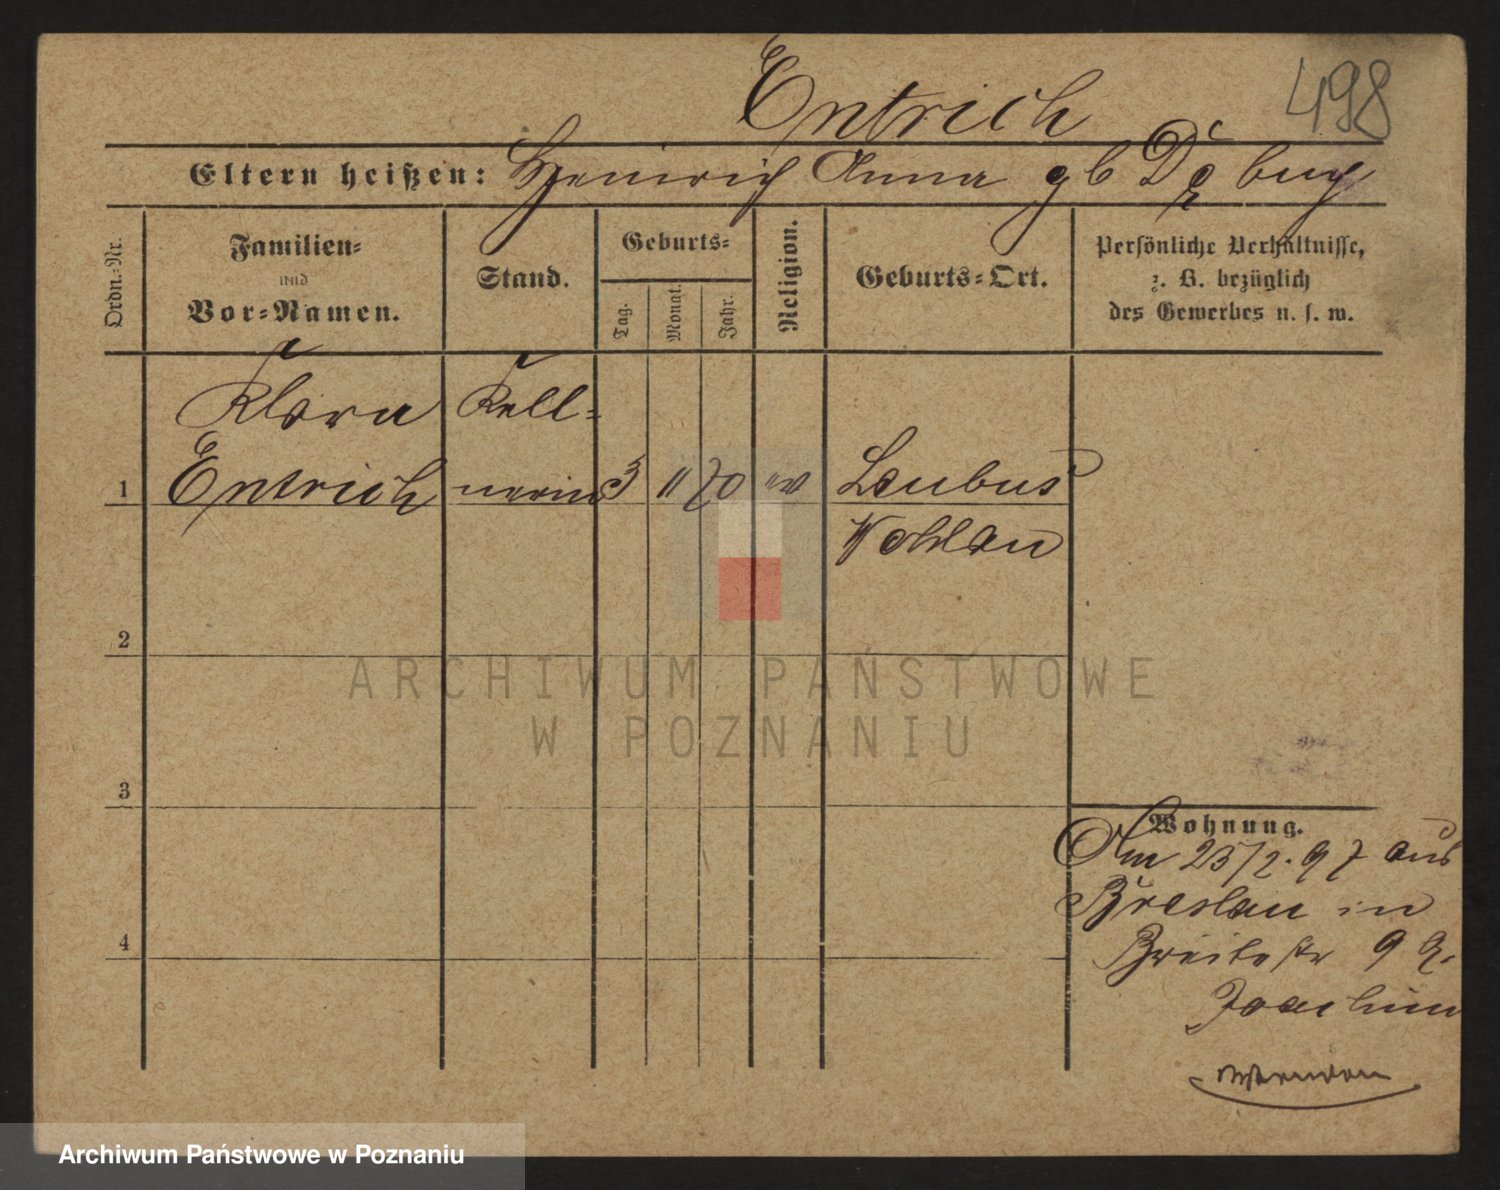 498
Entrich
Eltern heißen: Heinrich Anna gb
Ordn.=Nr.
Familien=
und
Vor=Namen.
Stand.
Geburts=
Tag.
Monat.
Jahr.
Religion.
Geburts=Ort.
Persönliche Verhältnisse,
z. B. bezüglich
des Gewerbes u. s. w.
Klara Kell=
1 Entrich nerin 3 11 70 Leubus
Wohlau
2
ARCHIWUM PAŃSTWOWE
W POZNANIU
3
Wohnung.
Am 25/2. 97 aus
Breslau in
4
Breitestr 9
Joachim
Wenden
Archiwum Państwowe w Poznaniu